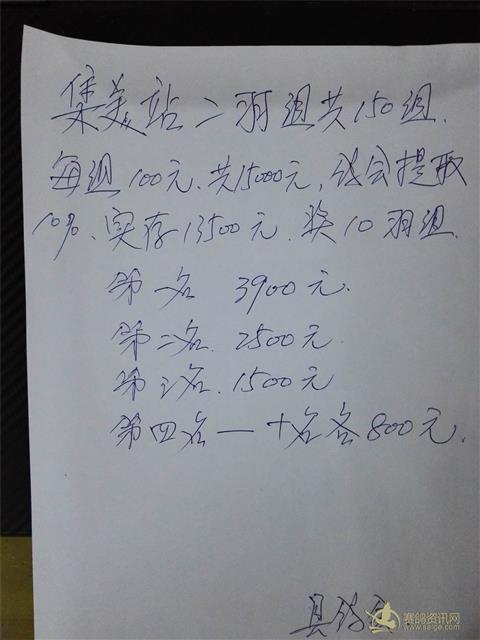 集美站二羽组共150组.
每组100元.共15000元,鸽会提取
10%、实存13500元.奖10羽组.
第一名 3900元.
第二名. 2500元.
第三名. 1500元
第四名—十名各800元.
县鸽会
赛鸽资讯网
www.saige.com